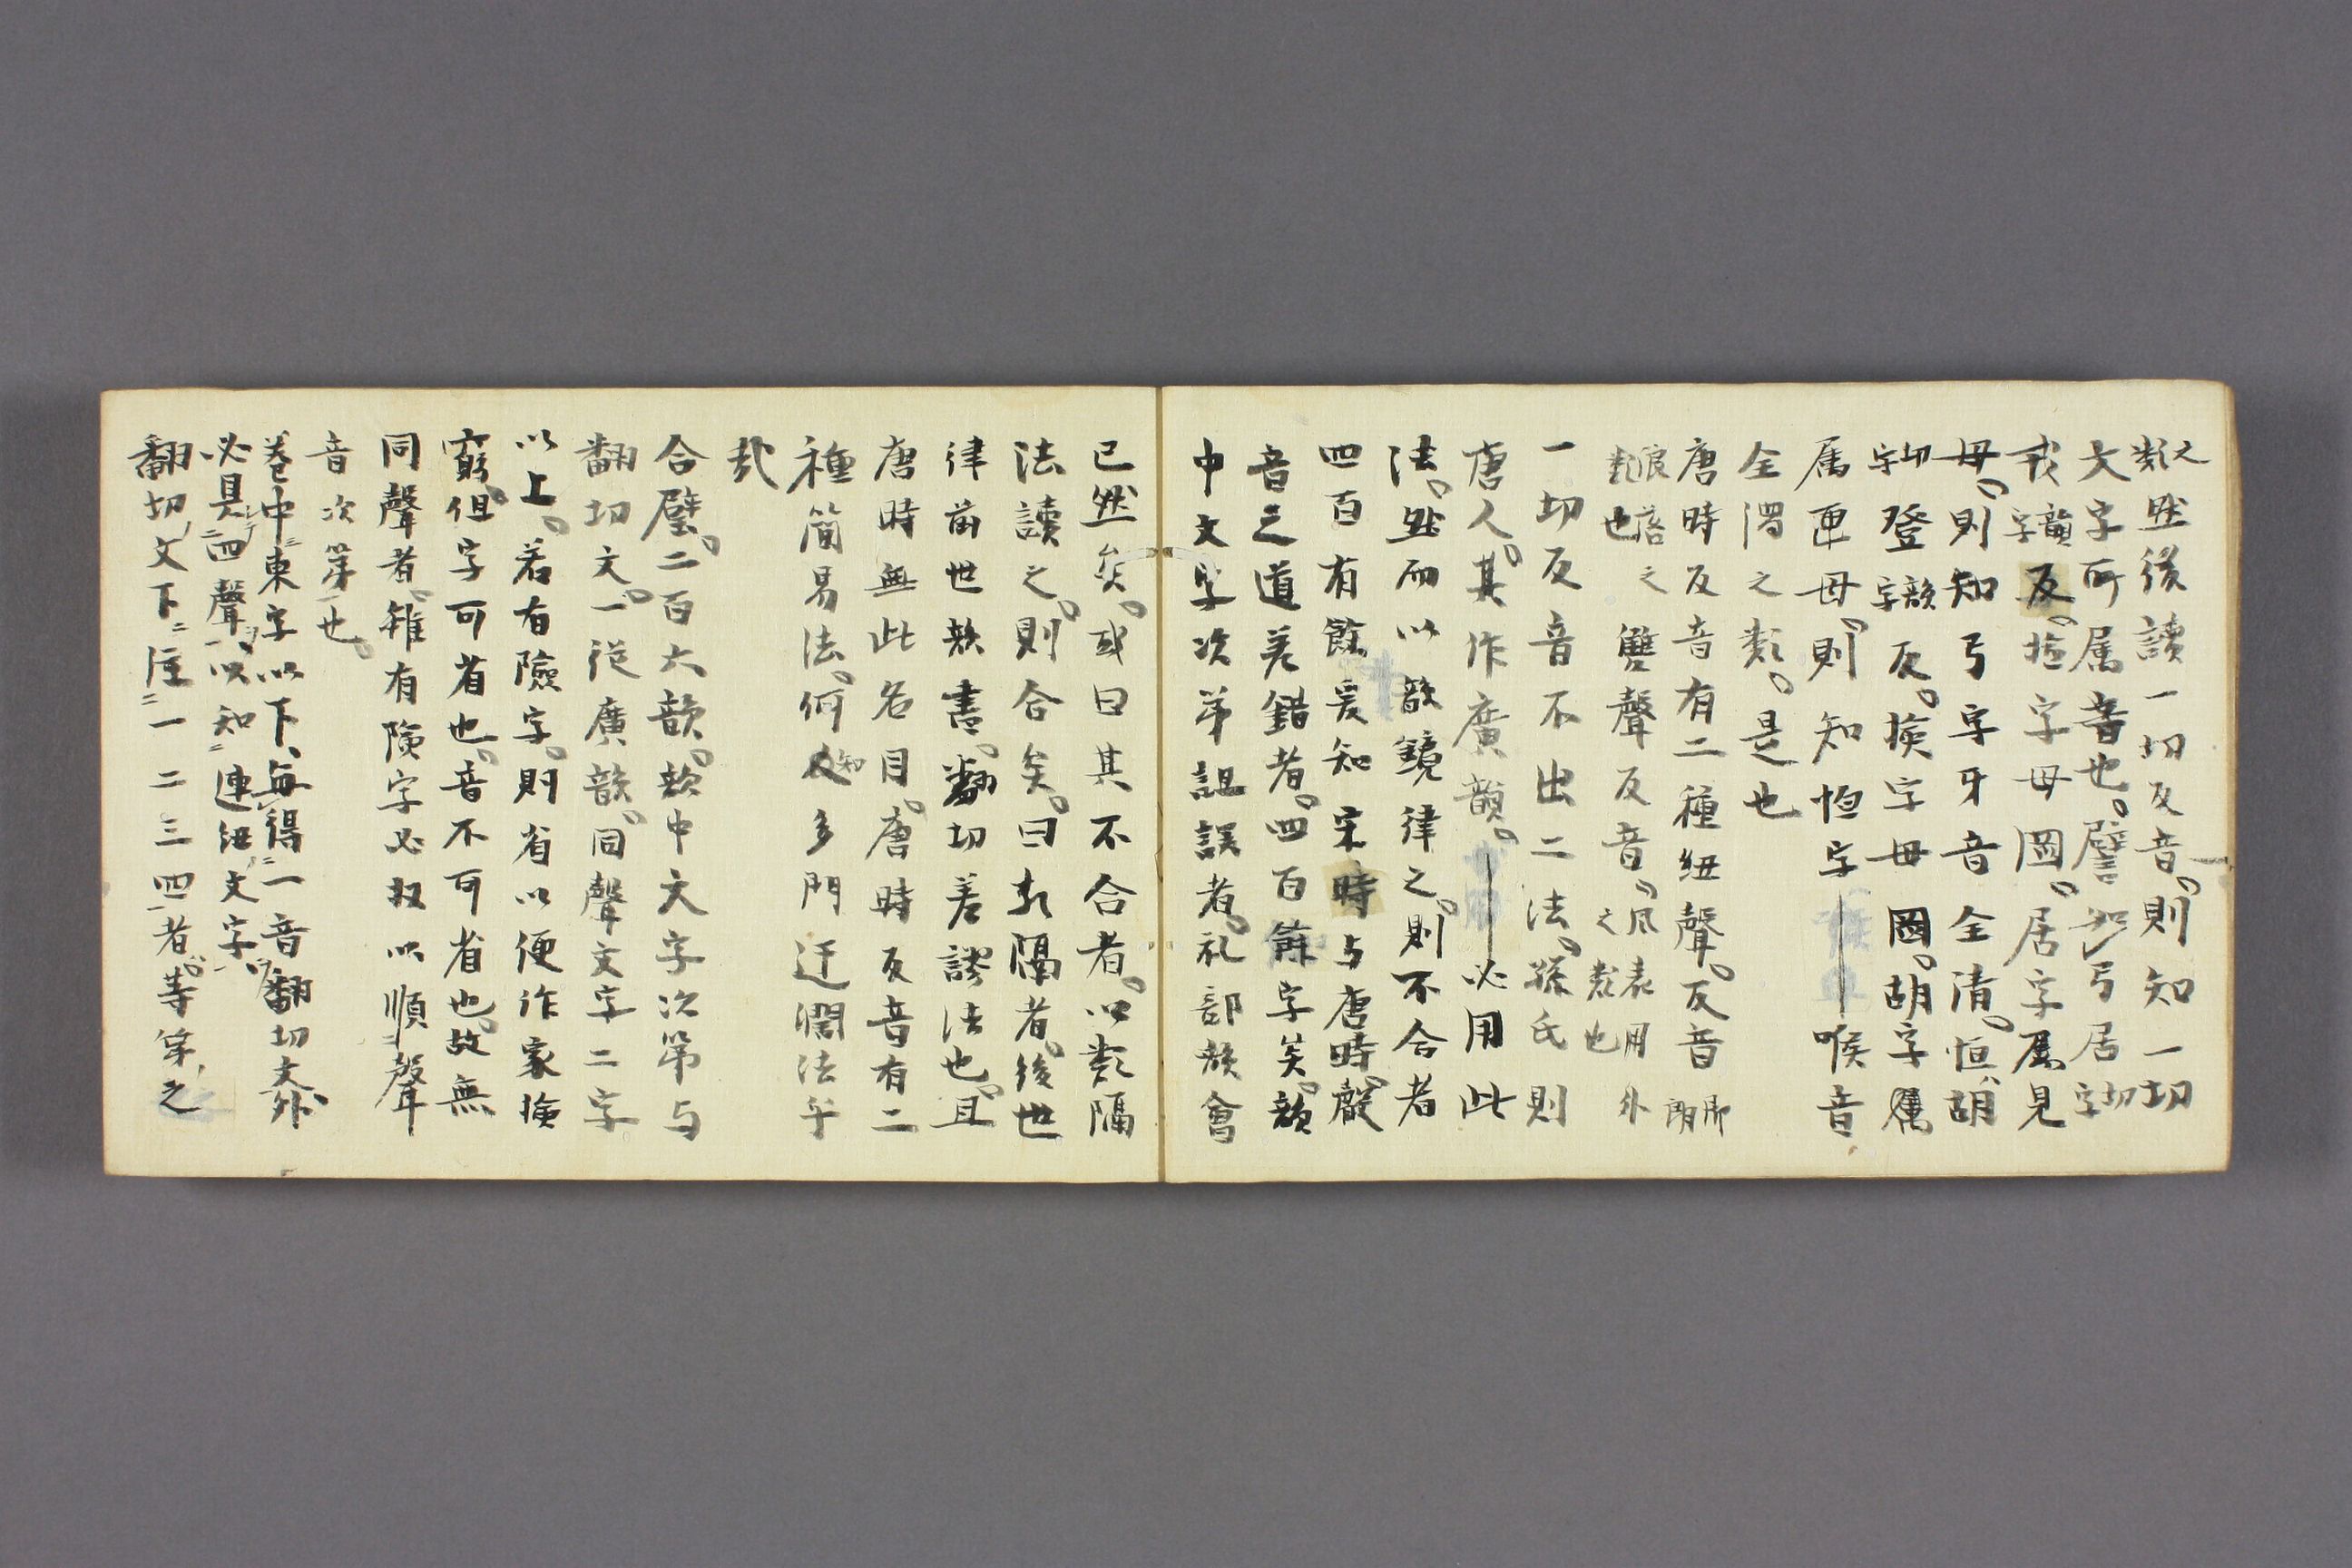 類之然後讀一切反音則知一切
文字所属音也譬如弓居切字
戎韻字反撿字母圖居字属見
母則知弓字牙音全清恒胡
切字登韻字反撿字母圖胡字属
属匣母則知恒字喉音
全濁之類是也
唐時反音有二種紐聲反音郎朗
浪落之類也雙聲反音風表用外之類也
一切反音不出二法孫氏則
唐人其作廣韻必用此
法然而以韻鏡律之則不合者
四百有餘爰知宋時与唐時聲
音之道差錯者四百餘字矣韻
中文字次第詛誤者礼部韻會
已然矣或曰其不合者以類隔
法讀之則合矣曰類隔者後世
律前世韻書翻切差謬法也且
唐時無此名目唐時反音有二
種簡易法何知多門迂濶法乎
哉
合璧二百六韻韻中文字次第与
翻切文一從廣韻同聲文字二字
以上若有險字則省以便作家撿
窮但字可省也音不可省也故無
同聲者雖有険字必权以順聲
音次第也
巻中東字以下每得一音翻切文外
必具四聲以知連紐文字
翻切文下注一二三四者等第之